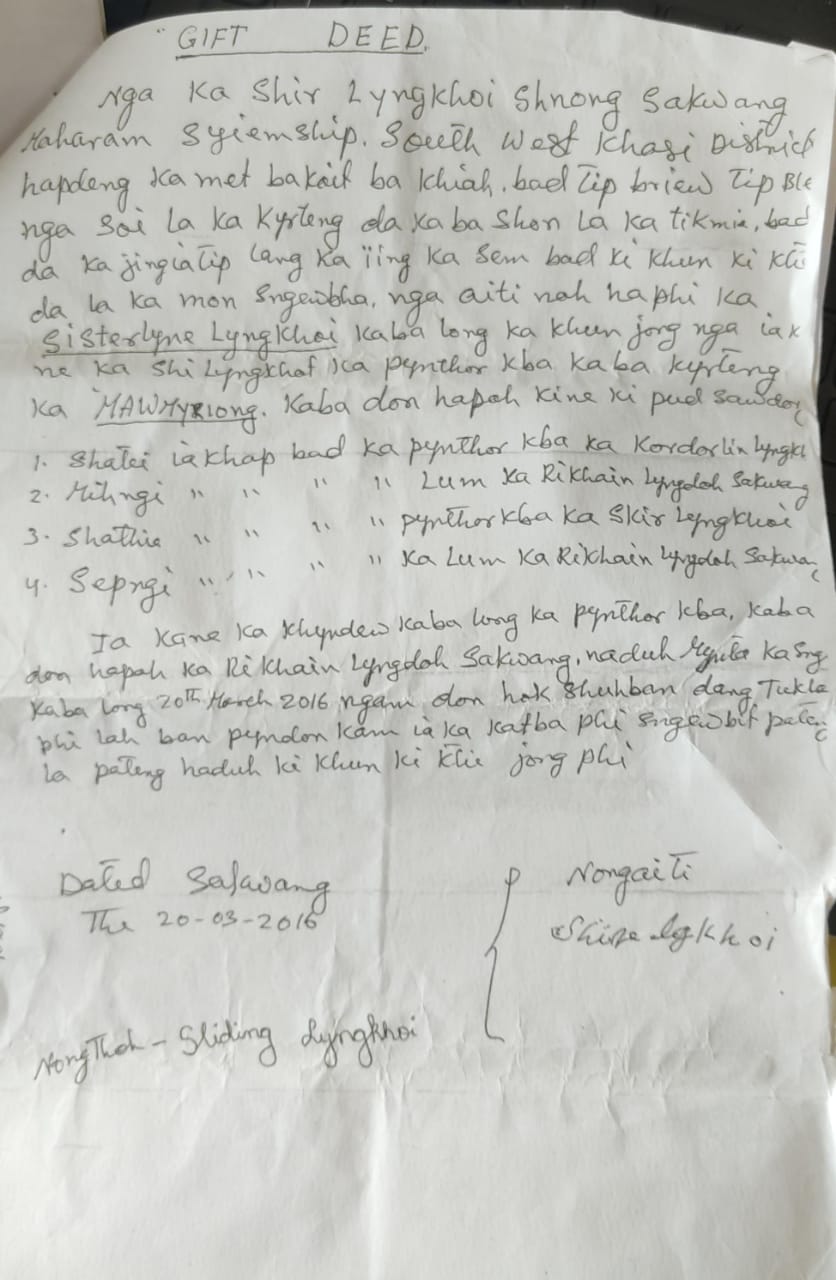 "GIFT DEED.
Nga Ka Shir Lyngkhoi Shnong Sakwang
Maharam Syiemship. South West Khasi District
hapdeng ka met bakoit ba khiah, bad Tip briew Tip Ble
nga soi la ka Kyrteng da kaba shon la ka tikmie, bad
da ka jingiaTip lang ka ïing ka sem bad ki khun ki ktie
da la ka mon sngewbha, nga aiti noh ha phi ka
Sisterlyne Lyngkhoi kaba long ka khun jong nga ia k
ne ka shi Lyngkhot ka pynthor kba kaba kyrteng
ka MAWMYRIONG. Kaba don hapoh kine ki pud sawdong
1. Shatei iakhap bad ka pynthor kba ka Kordorlin Lyngkh
2. Mihngi " " " " Lum ka Rikhain Lyngdoh Sakwang
3. Shathie " " " " pynthor kba ka Skir Lyngkhoi
4. Sepngi " " " " Ka Lum ka Rikhain Lyngdoh Sakwang
Ia kane ka Khyndew kaba long ka pynthor kba, kaba
don hapoh ka Rikhain Lyngdoh Sakwang, naduh Mynta ka sng
kaba long 20TH March 2016 ngam don hok shuh ban dang Tukla
phi lah ban pyndon kam ia ka katba phi sngewbit pateng
la pateng haduh ki khun ki ktie jong phi
Dated Sakwang
The 20-03-2016
Nongaiti
NongThoh - Sliding Lyngkhoi